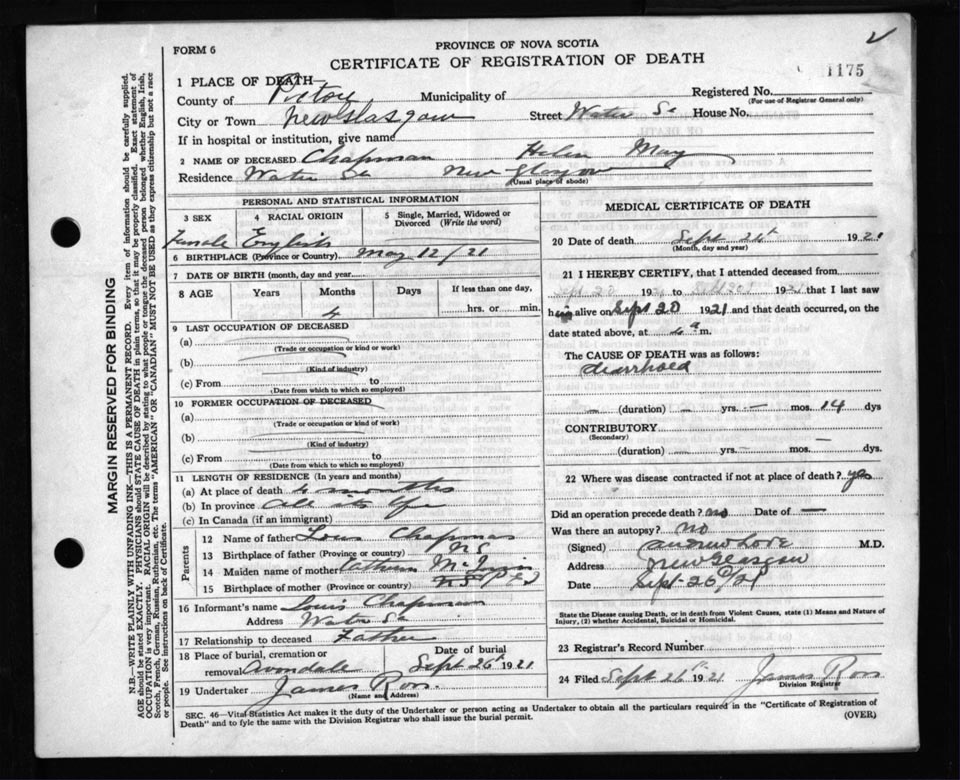 FORM 6
PROVINCE OF NOVA SCOTIA
CERTIFICATE OF REGISTRATION OF DEATH
1175
1 PLACE OF DEATH—
County of Pictou Municipality of Registered No.
(For use of Registrar General only)
City or Town New Glasgow Street Water St House No.
If in hospital or institution, give name
2 NAME OF DECEASED Chapman Helen May
Residence Water St New Glasgow
(Usual place of abode)
PERSONAL AND STATISTICAL INFORMATION
3 SEX 4 RACIAL ORIGIN 5 Single, Married, Widowed or Divorced (Write the word)
Female English
6 BIRTHPLACE (Province or Country) May 12/21
7 DATE OF BIRTH (month, day and year
8 AGE Years Months Days If less than one day,
4 hrs. or min.
9 LAST OCCUPATION OF DECEASED
(a)
(Trade or occupation or kind or work)
(b)
(Kind of industry)
(c) From to
(Date from which to which so employed)
10 FORMER OCCUPATION OF DECEASED
(a)
(Trade or occupation or kind of work)
(b)
(Kind of industry)
(c) From to
(Date from which to which so employed)
11 LENGTH OF RESIDENCE (In years and months)
(a) At place of death 4 months
(b) In province all its life
(c) In Canada (if an immigrant)
Parents
12 Name of father Louis Chapman
13 Birthplace of father (Province or country) NS
14 Maiden name of mother
15 Birthplace of mother (Province or country)
16 Informant's name Louis Chapman
Address Water St
17 Relationship to deceased Father
18 Place of burial, cremation or Date of burial
removal Avondale Sept 26th 1921
19 Undertaker James Ross
(Name and Address)
MEDICAL CERTIFICATE OF DEATH
20 Date of death Sept 1921
(Month, day and year)
21 I HEREBY CERTIFY, that I attended deceased from
Sept 20 1921 to 1921 that I last saw
h alive on Sept 20 1921 and that death occurred, on
date stated above, at m.
The CAUSE OF DEATH was as follows:
diarrhoea
— (duration) — yrs. — mos. 14 dys
CONTRIBUTORY
(Secondary)
(duration) yrs. mos. dys.
22 Where was disease contracted if not at place of death? yes
Did an operation precede death? no Date of —
Was there an autopsy? no
(Signed) Andrew Love M.D.
Address New Glasgow
Date Sept 26/21
State the Disease causing Death, or in death from Violent Causes, state (1) Means and Nature of
Injury, (2) whether Accidental, Suicidal or Homicidal.
23 Registrar's Record Number
24 Filed Sept 26th 1921 James Ross
Division Registrar
SEC. 46—Vital Statistics Act makes it the duty of the Undertaker or person acting as Undertaker to obtain all the particulars required in the "Certificate of Registration of
Death" and to fyle the same with the Division Registrar who shall issue the burial permit.
(OVER)
MARGIN RESERVED FOR BINDING
N.B.—WRITE PLAINLY WITH UNFADING INK—THIS IS A PERMANENT RECORD. Every item of information should be carefully supplied.
AGE should be stated EXACTLY. PHYSICIANS should STATE CAUSE OF DEATH in plain terms, so that it may be properly classified. Exact statement of
OCCUPATION is very important. RACIAL ORIGIN will be described by stating to what people or tongue the deceased person belonged, whether English, Irish,
Scotch, French, German, Russian, Ruthenian, etc. The terms "AMERICAN" OR "CANADIAN" MUST NOT BE USED as they express citizenship but not a race
or people. See instructions on back of Certificate.